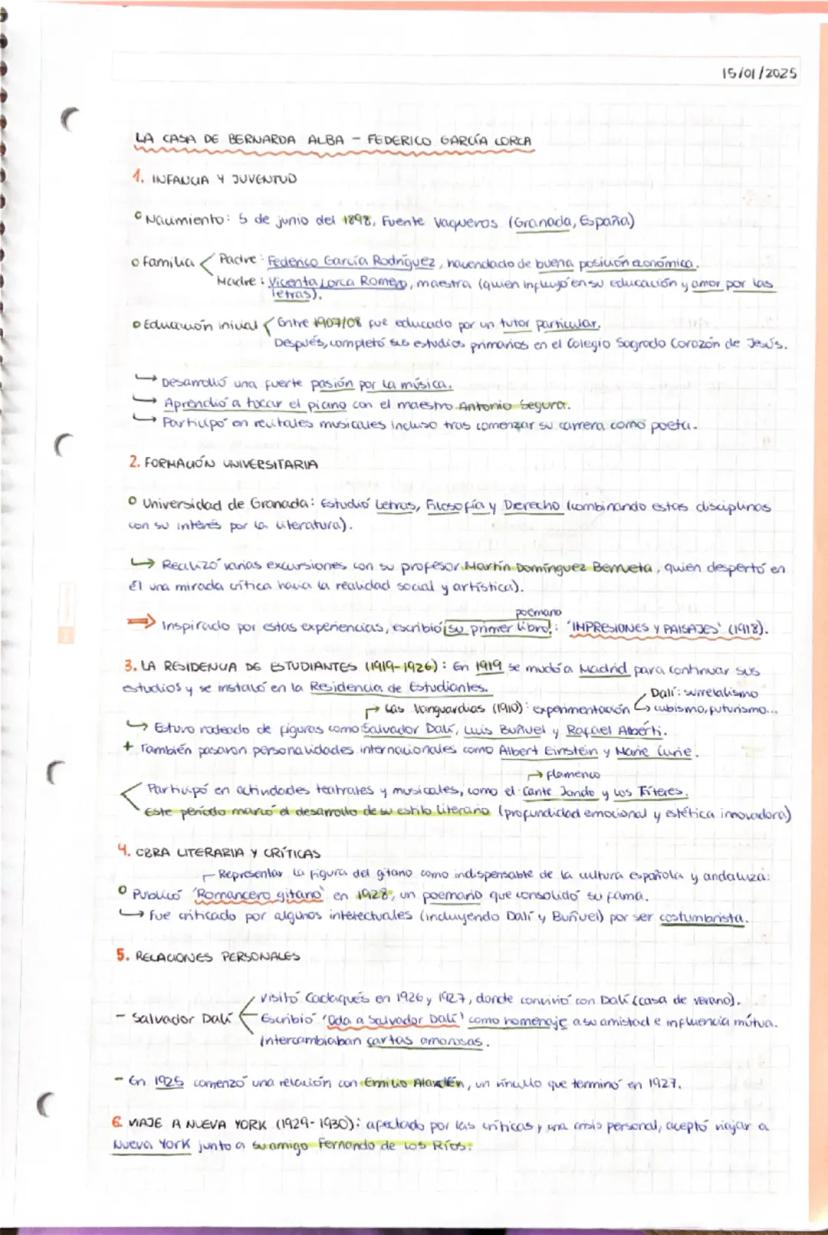 15/01/2025
LA CASA DE BERNARDA ALBA - FEDERICO GARCÍA LORCA
1. INFANCIA Y JUVENTUD
Nacimiento: 5 de junio del 1898, Fuente Vaqueros (Granada, España)
Familia < Padre: Federico García Rodríguez, hacendado de buena posición económica.
Madre: Vicenta Lorca Romero, maestra (quien influyó en su educación y amor por las
letras).
Educación inicial < Entre 1907/08 fue educado por un tutor particular.
Después, completó sus estudios primarios en el Colegio Sagrado Corazón de Jesús.
↳ Desarrolló una fuerte pasión por la música.
↳ Aprendió a tocar el piano con el maestro Antonio Segura.
↳ Participó en recitales musicales incluso tras comenzar su carrera como poeta.
2. FORMACIÓN UNIVERSITARIA
Universidad de Granada: Estudió Letras, Filosofía y Derecho (combinando estas disciplinas
con su interés por la literatura).
↳ Realizó varias excursiones con su profesor Martín Domínguez Berrueta, quien despertó en
Él una mirada crítica hacia la realidad social y artística).
poemario
⇒ Inspirado por estas experiencias, escribió su primer libro: 'IMPRESIONES Y PAISAJES' (1918).
3. LA RESIDENCIA DE ESTUDIANTES (1919-1926): En 1919 se mudó a Madrid para continuar sus
estudios y se instaló en la Residencia de Estudiantes.
Dalí: surrelalismo
→ Las Vanguardias (1910): experimentación ↳ cubismo, futurismo...
↳ Estuvo rodeado de figuras como Salvador Dalí, Luis Buñuel y Rafael Alberti.
+ También pasaron personalidades internacionales como Albert Einstein y Marie Curie.
→ flamenco
< Participó en actividades teatrales y musicales, como el Cante Jondo y Los Títeres.
Este período marcó el desarrollo de su estilo literario (profundidad emocional y estética innovadora)
4. OBRA LITERARIA Y CRÍTICAS
Representar la figura del gitano como indispensable de la cultura española y andaluza:
Publicó 'Romancero gitano' en 1928, un poemario que consolidó su fama.
↳ Fue criticado por algunos intelectuales (incluyendo Dalí y Buñuel) por ser costumbrista.
5. RELACIONES PERSONALES
Visitó Cadaqués en 1926 y 1927, donde convivió con Dalí (casa de verano).
- Salvador Dalí < Escribió 'Oda a Salvador Dalí' como homenaje a su amistad e influencia mútua.
Intercambiaban cartas amorosas.
- En 1925 comenzó una relación con Emilio Aladrén, un vínculo que terminó en 1927.
6. VIAJE A NUEVA YORK (1929-1930): afectado por las críticas y una crisis personal, aceptó viajar a
Nueva York junto a su amigo Fernando de los Ríos.